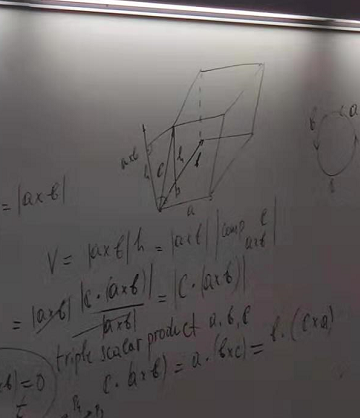 a×b
h c h b
a
b c a
b
= |a×b|
V = |a×b| h = |a×b| |comp a×b c|
= |a×b| |c·(a×b)| / |a×b| = |c·(a×b)|
triple scalar product a, b, c
×b) = 0 c·(a×b) = a·(b×c) = b·(c×a)